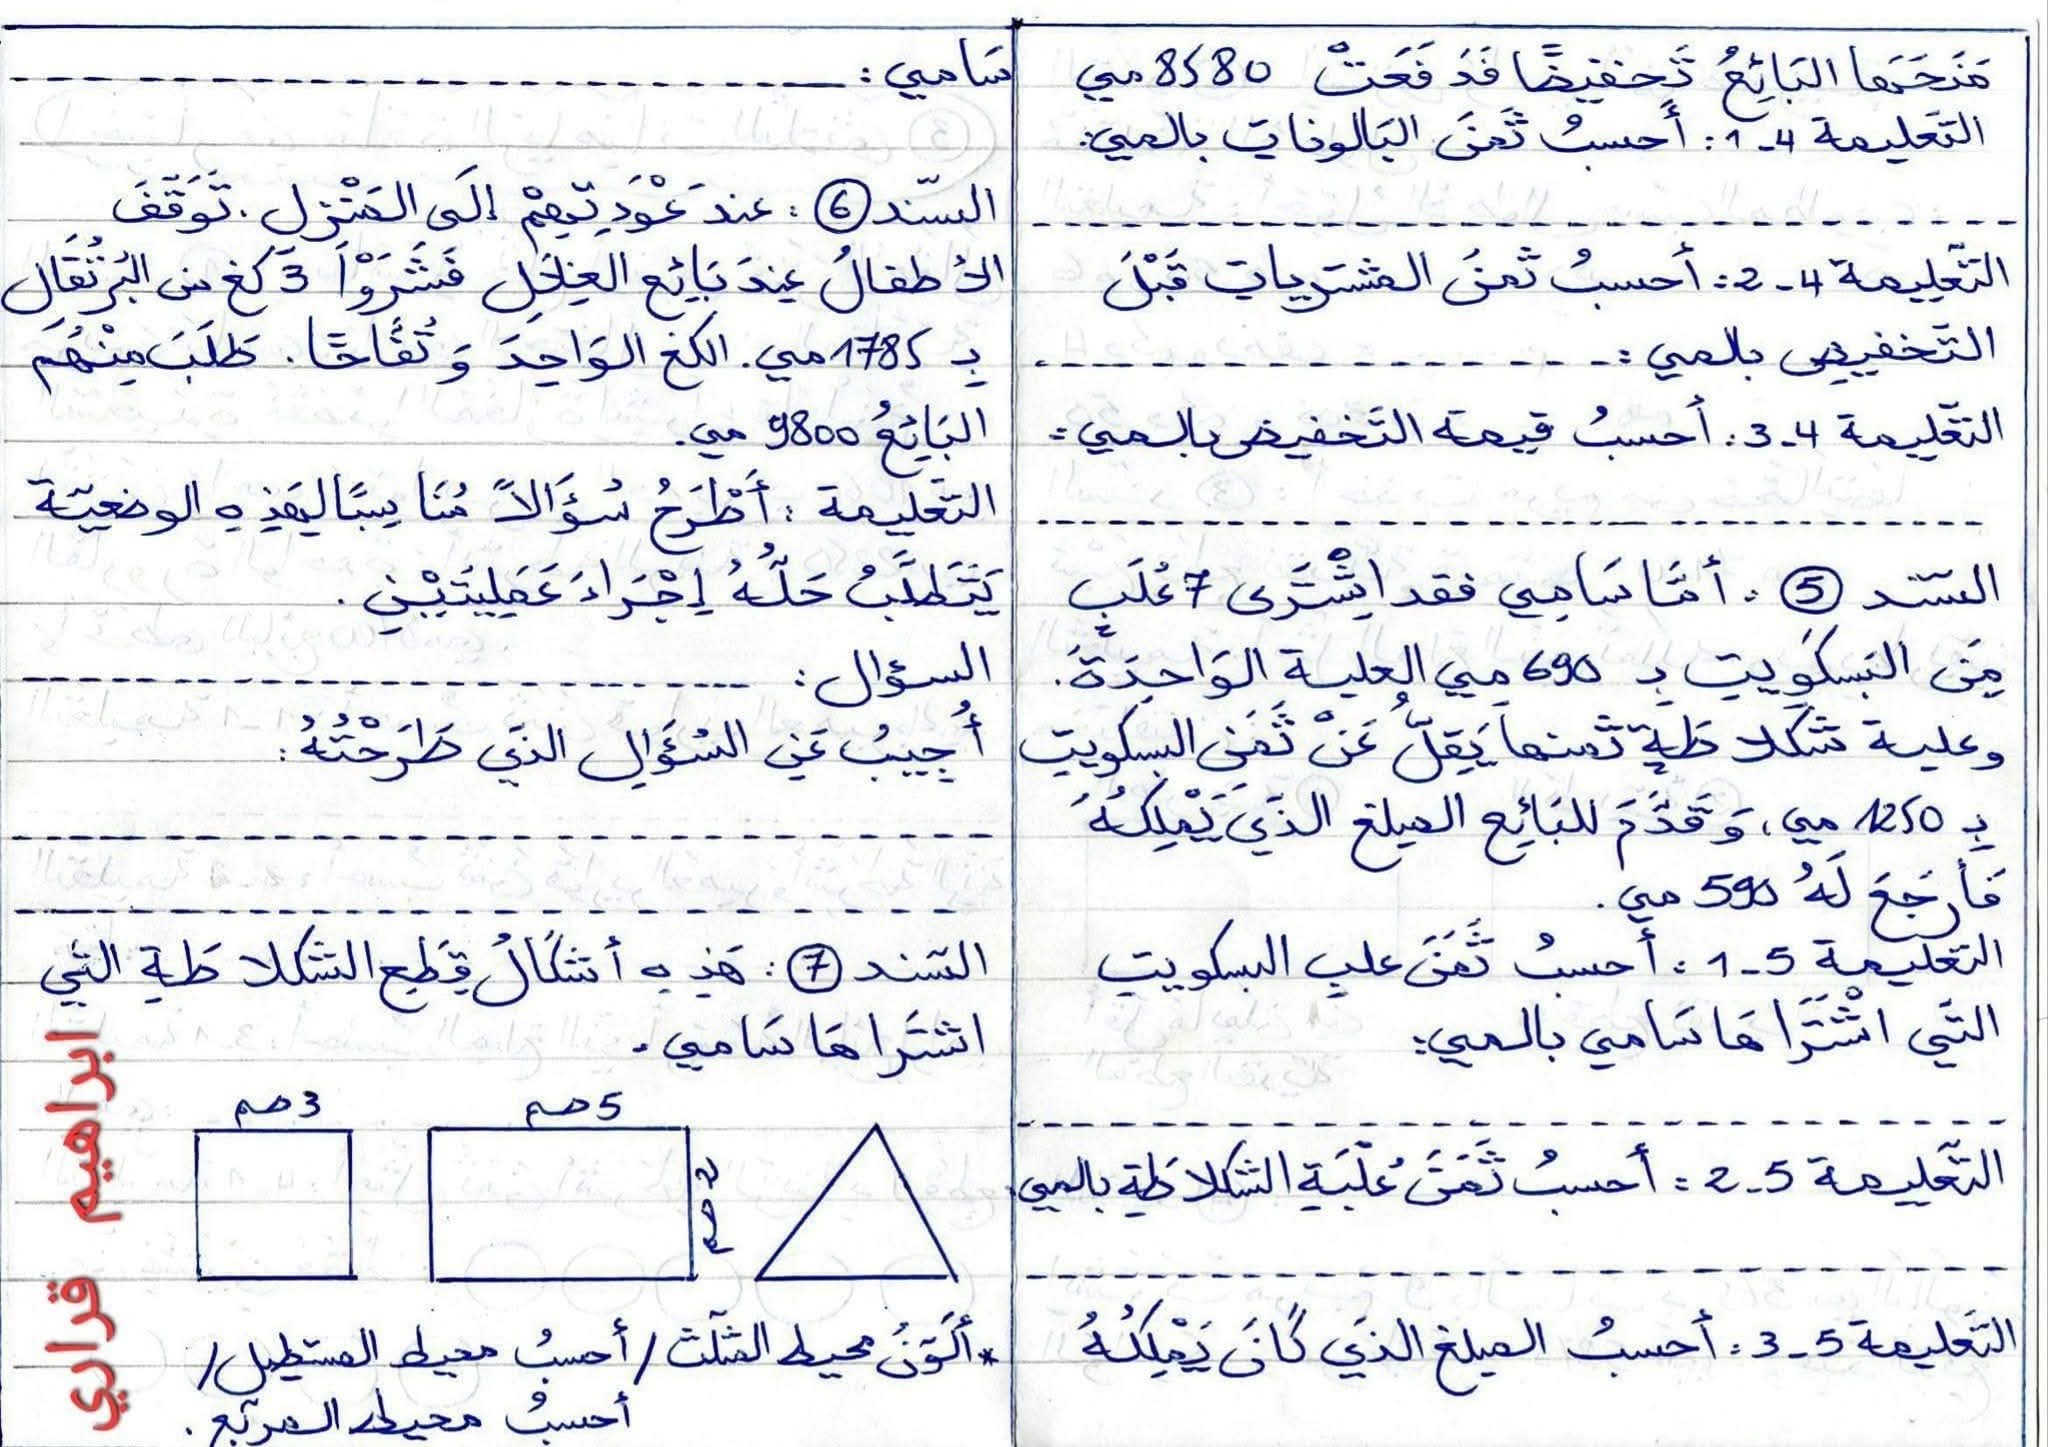 مَنَحَهَا البَائِعُ تَخفيضًا فَدَفَعَتْ 8580 مي
التّعليمة 4-1: أَحسبُ ثَمَنَ البَالونات بالمي:
التّعليمة 4-2: أحسبُ ثمنَ المشتريات قَبْلَ
التّخفيض بالمي:
التّعليمة 4-3: أحسبُ قيمة التّخفيض بالمي:
السّند 5: أمّا سَامِي فقد اشْتَرى 7 عُلَبٍ
مِنَ البَسكوِيت بِـ 690 مي العلبة الوَاحِدَة.
وعلبة شكلاطَةٍ ثمنها يَقِلُّ عَنْ ثَمَنِ البسكويت
بِـ 1250 مي، وَقَدَّمَ للبَائِع المبلغ الذَي يَمْلِكُهُ
فَأرجَعَ لَهُ 590 مي.
التّعليمة 5-1: أَحسبُ ثَمَنَ علب البسكويت
التّي اشْتَرَاهَا سَامي بالمي:
التّعليمة 5-2: أحسبُ ثَمَنَ عُلْبَةِ الشّكلاطَةِ بالمي
التّعليمة 5-3: أحسبُ المبلغ الذَي كَانَ يَمْلِكُهُ
سَامي:
السّند 6: عندَ عَوْدَتِهِمْ إلَى المَنْزِل، تَوَقَّفَ
الأطفالُ عِندَ بَائِع الغِلالِ فَشَرَوْا 3 كغ من البُرتُقَالِ
بِـ 1785 مي. الكغ الوَاحِدَ وَتُفَّاحًا. طَلَبَ مِنْهُم
البَائِعُ 9800 مي.
التّعليمة: أَطْرَحُ سُؤَالاً مُنَاسِبًا لِهَذِهِ الوضعيّة
يَتَطَلَّبُ حَلُّهُ إِجْرَاءَ عَمَلِيّتَيْنِ.
السؤال:
أُجِيبُ عَنِ السّؤَالِ الذَي طَرَحْتُهُ:
السّند 7: هَذِهِ أشكَالُ قِطَعِ الشّكلاطَةِ التّي
اشتَرَاهَا سَامي.
3 صم
5 صم
2 صم
*أُلَوّنُ محيط المثلّث / أحسبُ محيط المستطيل /
أحسبُ محيط المربّع.
ابراهيم قراري